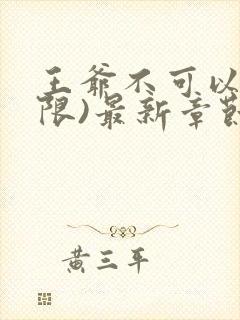 王爷不可以
限)最新章节
黄三平